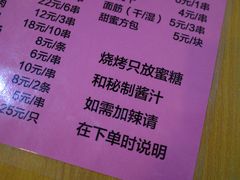 22元/6串
3元/串
18元/10串
8元/条
6元/串
5元/串
10元/串
8元/2条
10元/5串
25元/只
6元/1串
面筋(干/湿) 4元/串
甜蜜方包 5元/3串
5元/块
烧烤只放蜜糖
和秘制酱汁
如需加辣请
在下单时说明